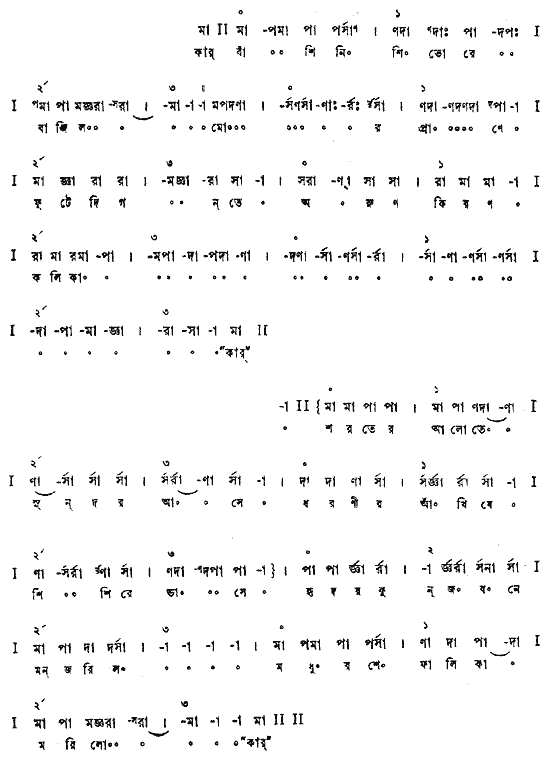 ০ ১
মা II মা -পমা পা পর্সাণ । ণদা ণদাঃ পা -দপঃ I
কার্ বাঁ ০০ শি নি০ শি০ ভো০ রে ০০
২´ ৩ ০ ১
I পমা পা মজ্ঞরা -সরা । -মা -া -া মপদণা । -র্সণর্সা -ণাঃ -র্রঃ র্সা । ণদা -ণদণদা পা -া I
বা জি ল০০ ০ ০ ০ ০ মো০০০ ০০০ ০ ০ র প্রা০ ০০০০ ণে ০
২´ ৩ ০ ১
I মা জ্ঞা রা রা । -মজ্ঞা -রা সা -া । সরা -ণ্ সা সা । রা মা মা -া I
ফু টে দি গ ০০ ন্ তে ০ অ ০ রু ণ কি র ণ ০
২´ ৩ ০ ১
I রা মা রমা -পা । -মপা -দা -পদা -ণা । -দণা -র্সা -ণর্সা -র্রা । -র্সা -ণা -ণর্সা -ণর্সা I
ক লি কা০ ০ ০০ ০ ০০ ০ ০০ ০ ০০ ০ ০ ০ ০০ ০০
২´ ৩
I -দা -পা -মা -জ্ঞা । -রা -সা -া মা II
০ ০ ০ ০ ০ ০ ০ "কার্"
০ ১
-া II { মা মা পা পা । মা পা ণদা -ণা I
০ শ র তে র আ লো তে০ ০
২´ ৩ ০ ১
I ণা -র্সা র্সা র্সা । র্সর্রা -ণা র্সা -া । দা দা ণা র্সা । র্সর্জ্ঞা র্রা র্সা -া I
সু ন্ দ র আ০ ০ সে ০ ধ র ণী র আঁ০ খি যে ০
২´ ৩ ০ ২
I ণা -র্সর্রা র্সণা র্সা । ণদা -ণদপা পা -া } । পা পা র্জ্ঞা র্রা । -া র্জ্ঞর্রা র্সনা র্সা I
শি ০০ শি রে ভা০ ০০ সে ০ হৃ দ য় কু ন্ জ০ ব০ নে
২´ ৩ ০ ১
I মা পা দা দর্সা । -া -া -া -া । মা পমা পা পর্সা । ণা দা পা -দা I
মন্ জ রি ল০ ০ ০ ০ ০ ম ধু০ র শে০ ফা লি কা ০
২´ ৩
I মা পা মজ্ঞরা -সরা । -মা -া -া মা II II
ম রি লো০০ ০ ০ ০ ০ "কার্"